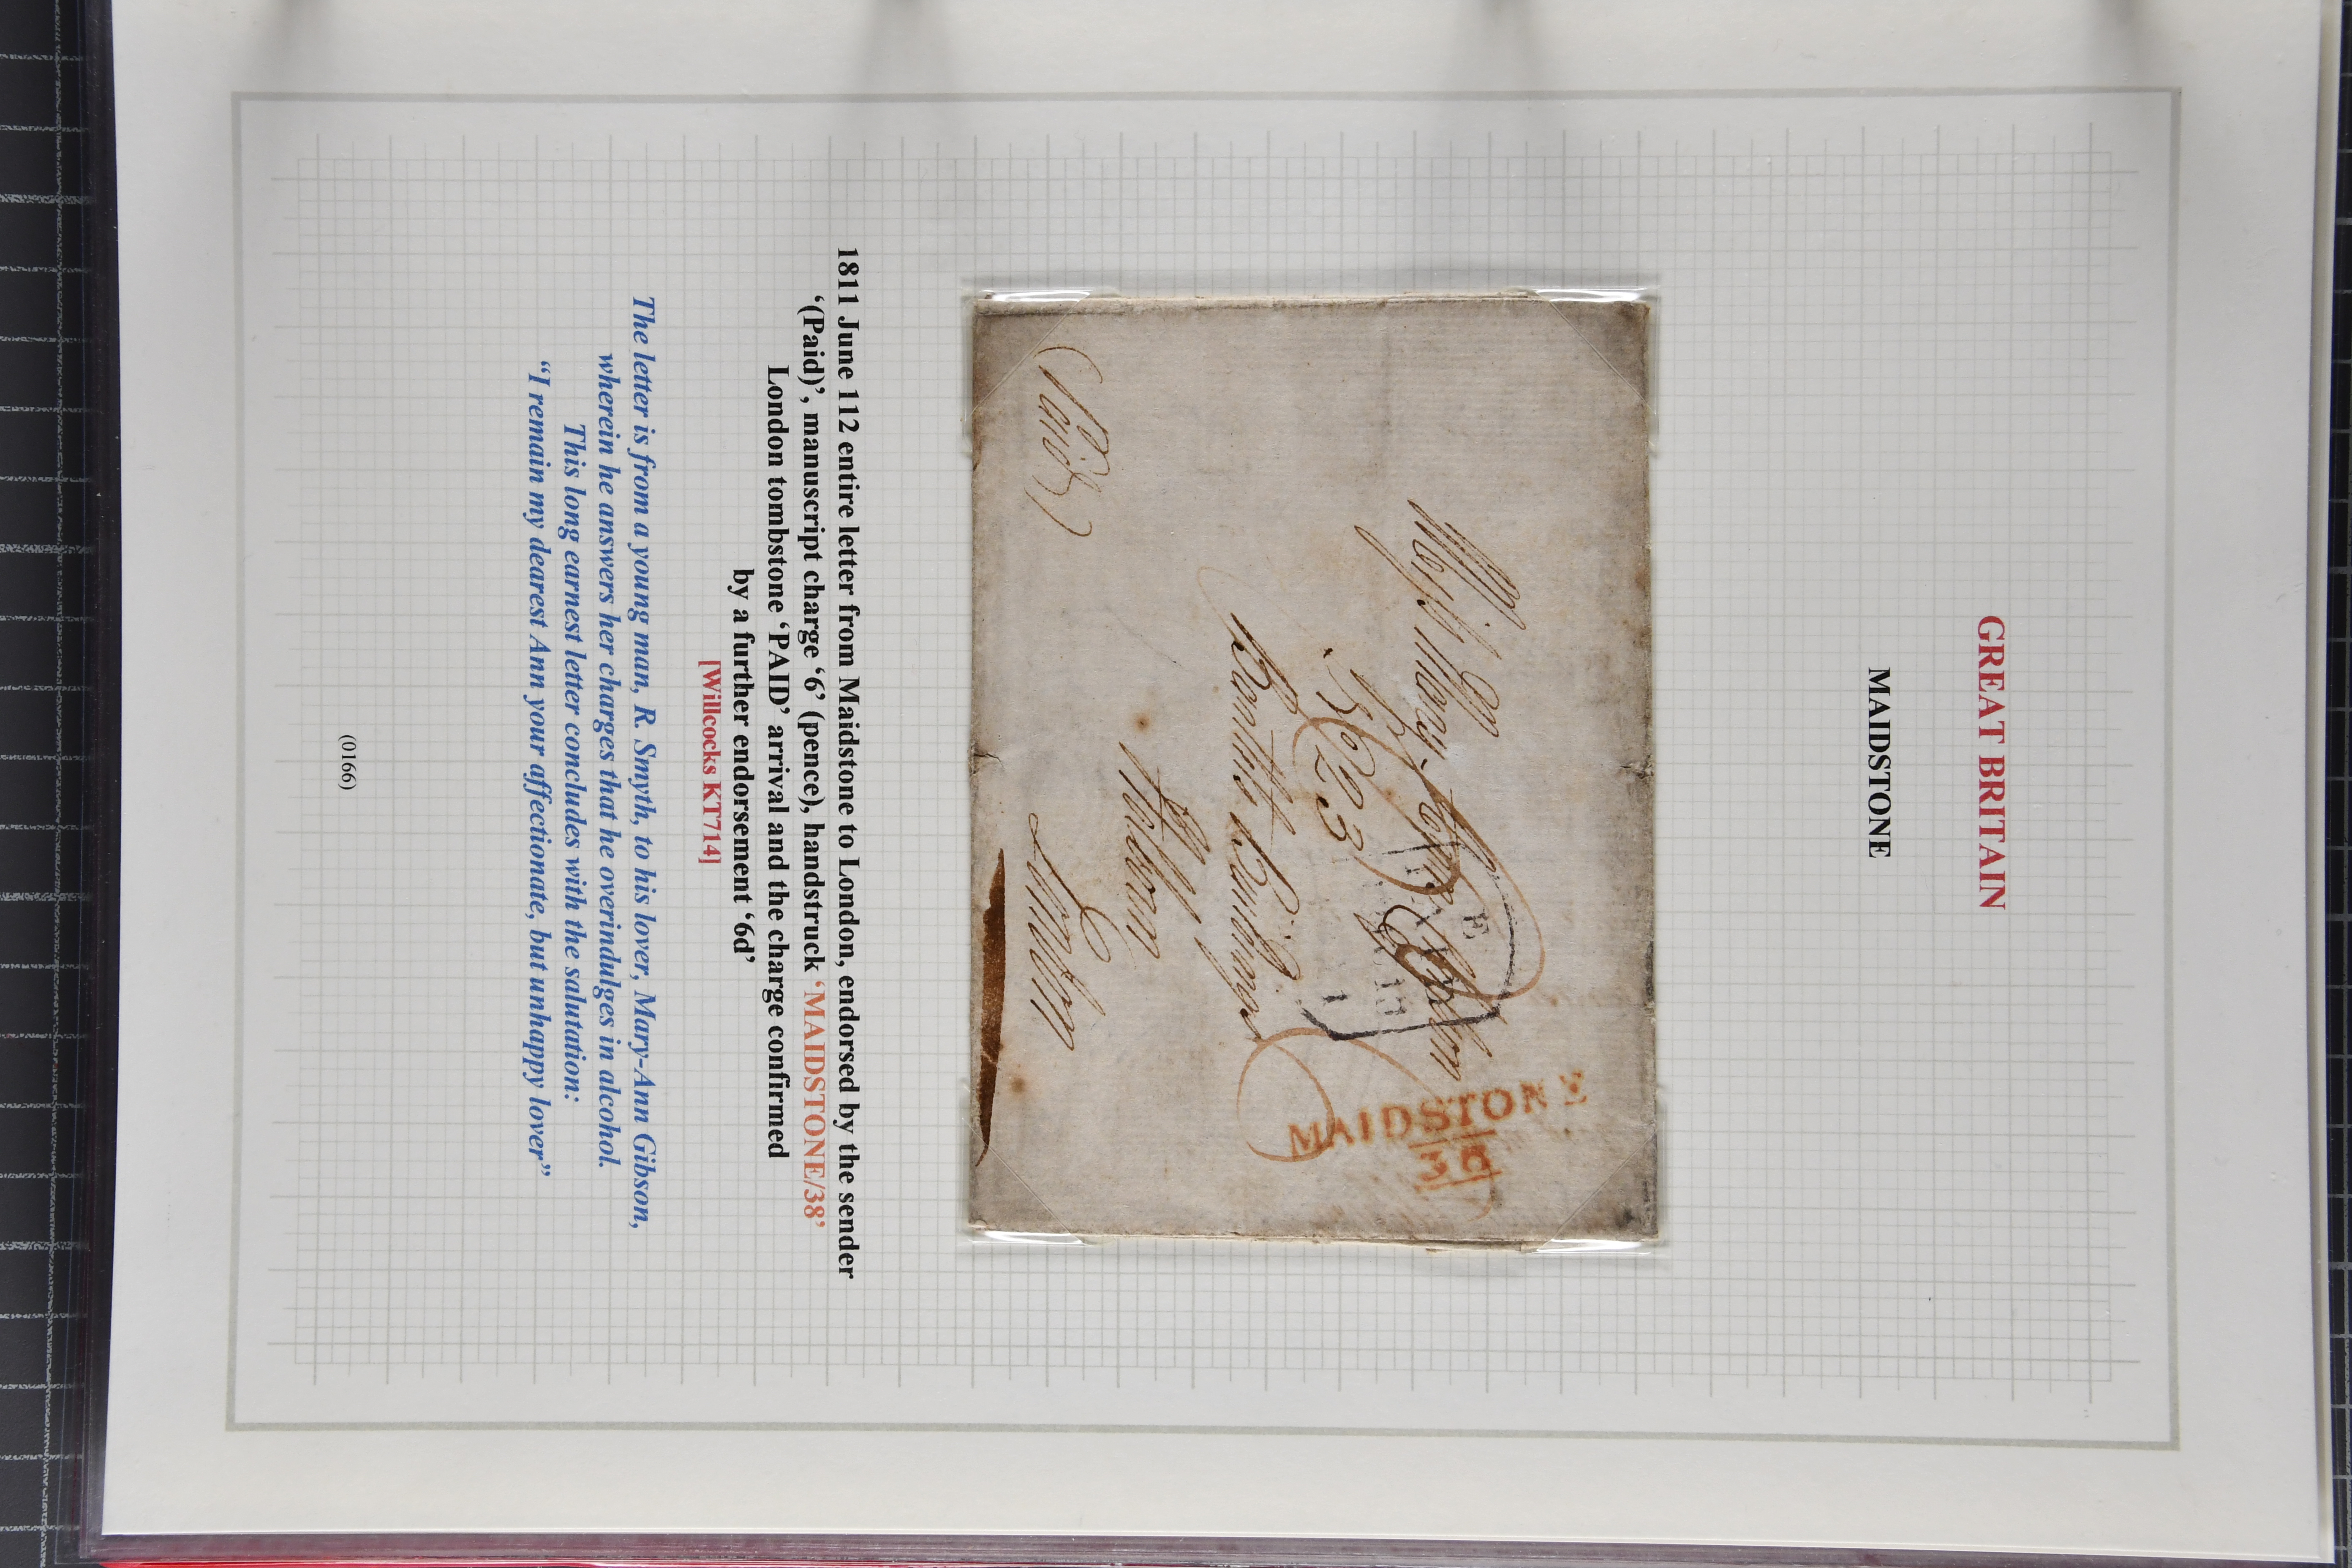 GREAT BRITAIN
MAIDSTONE
MAIDSTONE
38
Miss Mary Ann Gibson
No 23
Bartletts Buildings
Holborn
London
(Paid)
1811 June 112 entire letter from Maidstone to London, endorsed by the sender
‘(Paid)’, manuscript charge ‘6’ (pence), handstruck ‘MAIDSTONE/38’
London tombstone ‘PAID’ arrival and the charge confirmed
by a further endorsement ‘6d’
[Willcocks KT714]
The letter is from a young man, R. Smyth, to his lover, Mary-Ann Gibson,
wherein he answers her charges that he overindulges in alcohol.
This long earnest letter concludes with the salutation:
“I remain my dearest Ann your affectionate, but unhappy lover”
(0166)